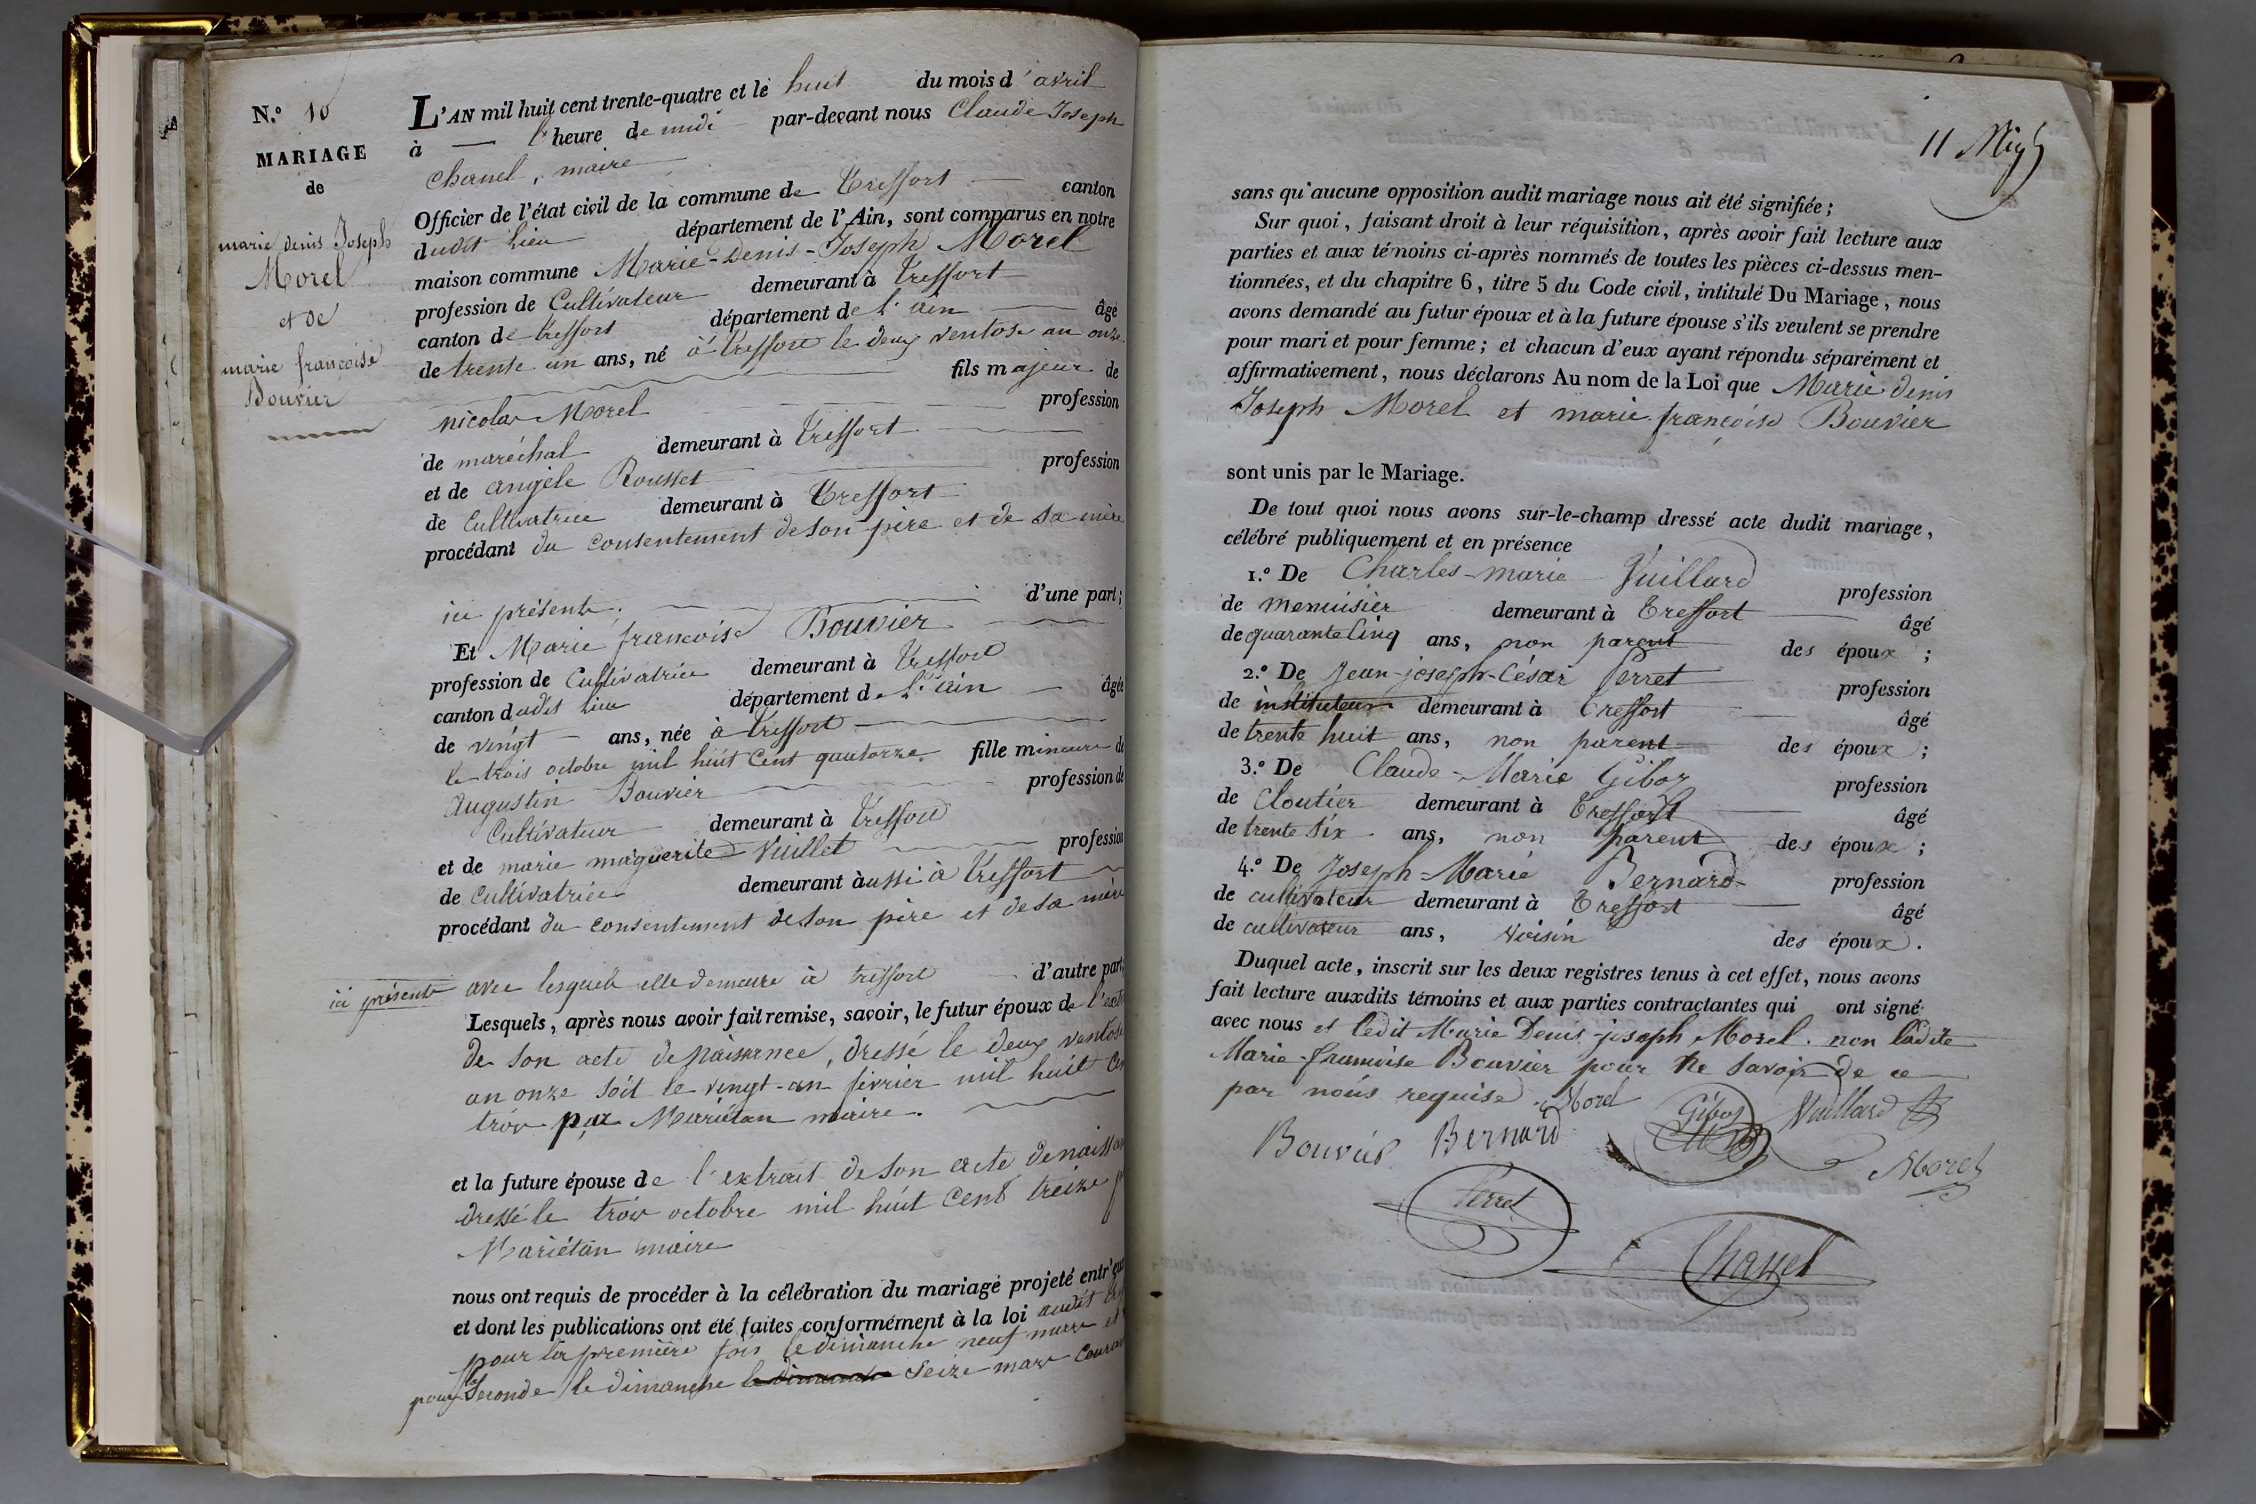 N.º 10
MARIAGE
de
marie denis Joseph
Morel
et de
marie françoise
Bouvier
L'AN mil huit cent trente-quatre et le huit du mois d'avril
à l'heure de midi par-devant nous Claude Joseph
Chanel, maire
Officier de l'état civil de la commune de Treffort canton
dudit lieu département de l'Ain, sont comparus en notre
maison commune Marie-Denis-Joseph Morel
profession de Cultivateur demeurant à Treffort
canton de treffort département de l'ain âgé
de trente un ans, né à treffort le deux ventose an onze
fils majeur de
nicolas Morel profession
de maréchal demeurant à Treffort
et de angèle Rousset profession
de Cultivatrice demeurant à Treffort
procédant du consentement de son père et de sa mère
ici présents; d'une part;
Et Marie françoise Bouvier
profession de Cultivatrice demeurant à Treffort
canton dudit lieu département de l'ain âgée
de vingt ans, née à treffort
le trois octobre mil huit Cent quatorze. fille mineure de
augustin Bouvier profession de
Cultivateur demeurant à Treffort
et de marie maguerite Vuillet profession
de Cultivatrice demeurant aussi à Treffort
procédant du consentement de son père et de sa mère
ici présents avec lesquels elle demeure à treffort d'autre part;
Lesquels, après nous avoir fait remise, savoir, le futur époux de l'
de son acte de Naissance, dressé le deux ventose
an onze soit le vingt-un fevrier mil huit
trois par Mariétan maire.
et la future épouse de l'extrait de son acte de
dressé le trois octobre mil huit Cent treize
Mariétan maire
nous ont requis de procéder à la célébration du mariage projeté entr'eux
et dont les publications ont été faites conformément à la loi audit
pour la première fois le dimanche neuf mars et
pour la Seconde le dimanche le dimanche seize mars
11 
sans qu'aucune opposition audit mariage nous ait été signifiée;
Sur quoi, faisant droit à leur réquisition, après avoir fait lecture aux
parties et aux témoins ci-après nommés de toutes les pièces ci-dessus men-
tionnées, et du chapitre 6, titre 5 du Code civil, intitulé Du Mariage, nous
avons demandé au futur époux et à la future épouse s'ils veulent se prendre
pour mari et pour femme; et chacun d'eux ayant répondu séparément et
affirmativement, nous déclarons Au nom de la Loi que Marie denis
Joseph Morel et marie françoise Bouvier
sont unis par le Mariage.
De tout quoi nous avons sur-le-champ dressé acte dudit mariage,
célébré publiquement et en présence
1.º De Charles-marie Vuillard profession
de menuisier demeurant à Treffort âgé
de quarante Cinq ans, non parent des époux;
2.º De Jean-joseph-César Perret profession
de instituteur demeurant à Treffort âgé
de trente huit ans, non parent des époux;
3.º De Claude-Marie Giboz profession
de Cloutier demeurant à Treffort âgé
de trente six ans, non parent des époux;
4.º De Joseph-Marie Bernard profession
de cultivateur demeurant à Treffort âgé
de cultivateur ans, voisin des époux.
Duquel acte, inscrit sur les deux registres tenus à cet effet, nous avons
fait lecture auxdits témoins et aux parties contractantes qui ont signé
avec nous et ledit Marie Denis-joseph Morel. non ladite
Marie-françoise Bouvier pour ne savoir de ce
par nous requise. Morel
Giboz Vuillard
Bouvier Bernard
Morel
Perret
Chanel